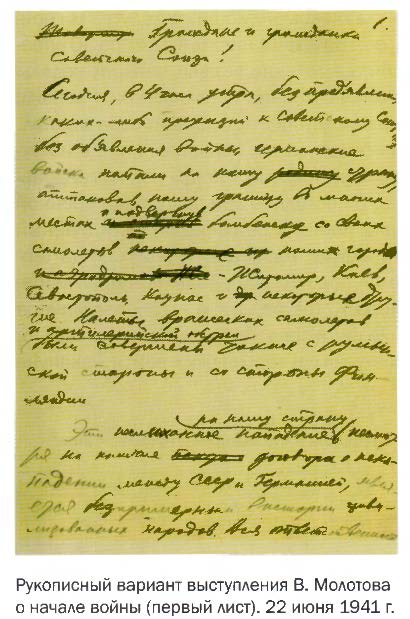 1.
Граждане и гражданки
Советского Союза!
Сегодня, в 4 часа утра, без предъявления
каких-либо претензий к Советскому Союзу,
без объявления войны, германские
войска напали на нашу страну,
атаковав нашу границу во многих
местах и подвергнув бомбежке со своих
самолетов наши города
- Житомир, Киев,
Севастополь, Каунас и некоторые дру-
гие. Налеты вражеских самолетов
и артиллерийский обстрел
были совершены также с румын-
ской стороны и со стороны Фин-
ляндии
на нашу страну
Это неслыханное нападение, несмот-
ря на наличие договора о нена-
падении между СССР и Германией, явля-
ется беспримерным в истории циви-
лизованных народов. Вся ответственность
Рукописный вариант выступления В. Молотова
о начале войны (первый лист). 22 июня 1941 г.